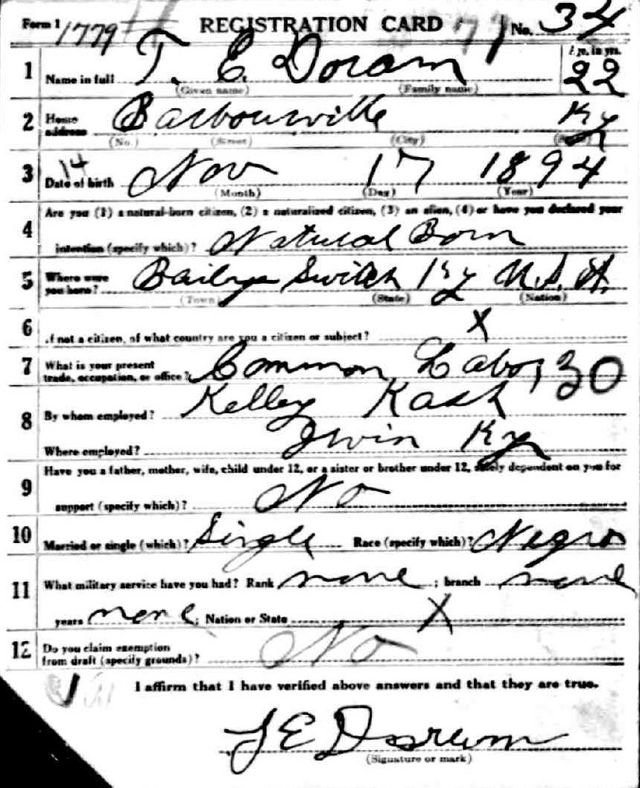 Form 1 1779 REGISTRATION CARD No. 34
1 Name in full T. E. Doram Age, in yrs. 22
(Given name) (Family name)
2 Home address Barbourville Ky
(No.) (Street) (City) (State)
14
3 Date of birth Nov 17 1894
(Month) (Day) (Year)
Are you (1) a natural-born citizen, (2) a naturalized citizen, (3) an alien, (4) or have you declared your
4 intention (specify which)? Natural Born
5 Where were you born? Bailyes Switch Ky U.S.A.
(Town) (State) (Nation)
6 If not a citizen, of what country are you a citizen or subject? X
7 What is your present trade, occupation, or office? Common Labor 30
8 By whom employed? Kelley Kash
Where employed? Irvin Ky
Have you a father, mother, wife, child under 12, or a sister or brother under 12, solely dependent on you for
9 support (specify which)? No
10 Married or single (which)? Single Race (specify which)? Negro
11 What military service have you had? Rank none ; branch none
years none ; Nation or State X
12 Do you claim exemption from draft (specify grounds)? No
I affirm that I have verified above answers and that they are true.
T E Doram
(Signature or mark)